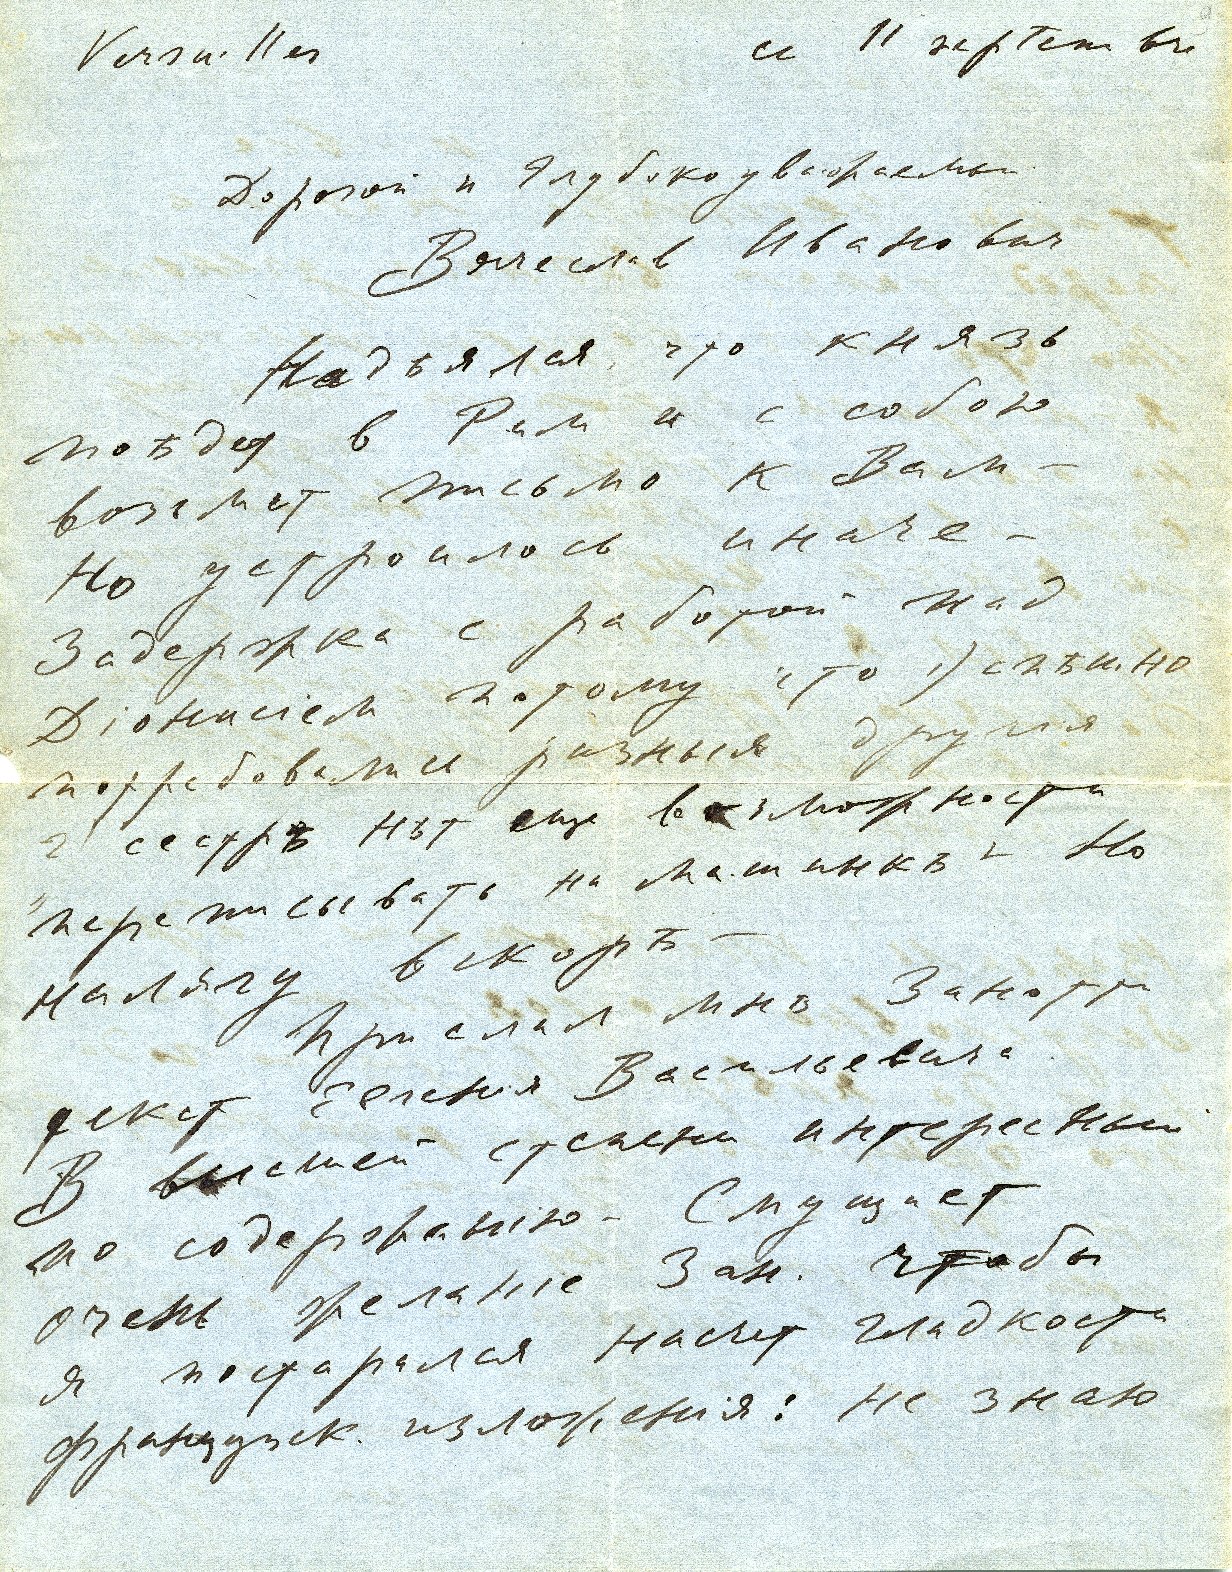 Versailles ce 11 septembre
Дорогой и Глубокоуважаемый
Вячеслав Иванович
Надѣялся, что князь
поѣдет в Рим и с собою
возьмет письмо к Вам –
Но устроилось иначе –
Задержка с работой над
Діонисіем потому что 1) спѣшно
потребовались разныя другия
2) сестрѣ нѣт еще возможности
переписывать на машинкѣ – Но
налягу вскорѣ –
Прислал мнѣ Занотти
текст Евгения Васильевича
В высшей степени интересный
по содержанію – Смущает
очень желаніе Зан. чтобы
я постарался насчет гладкости
французск. изложенія: не знаю